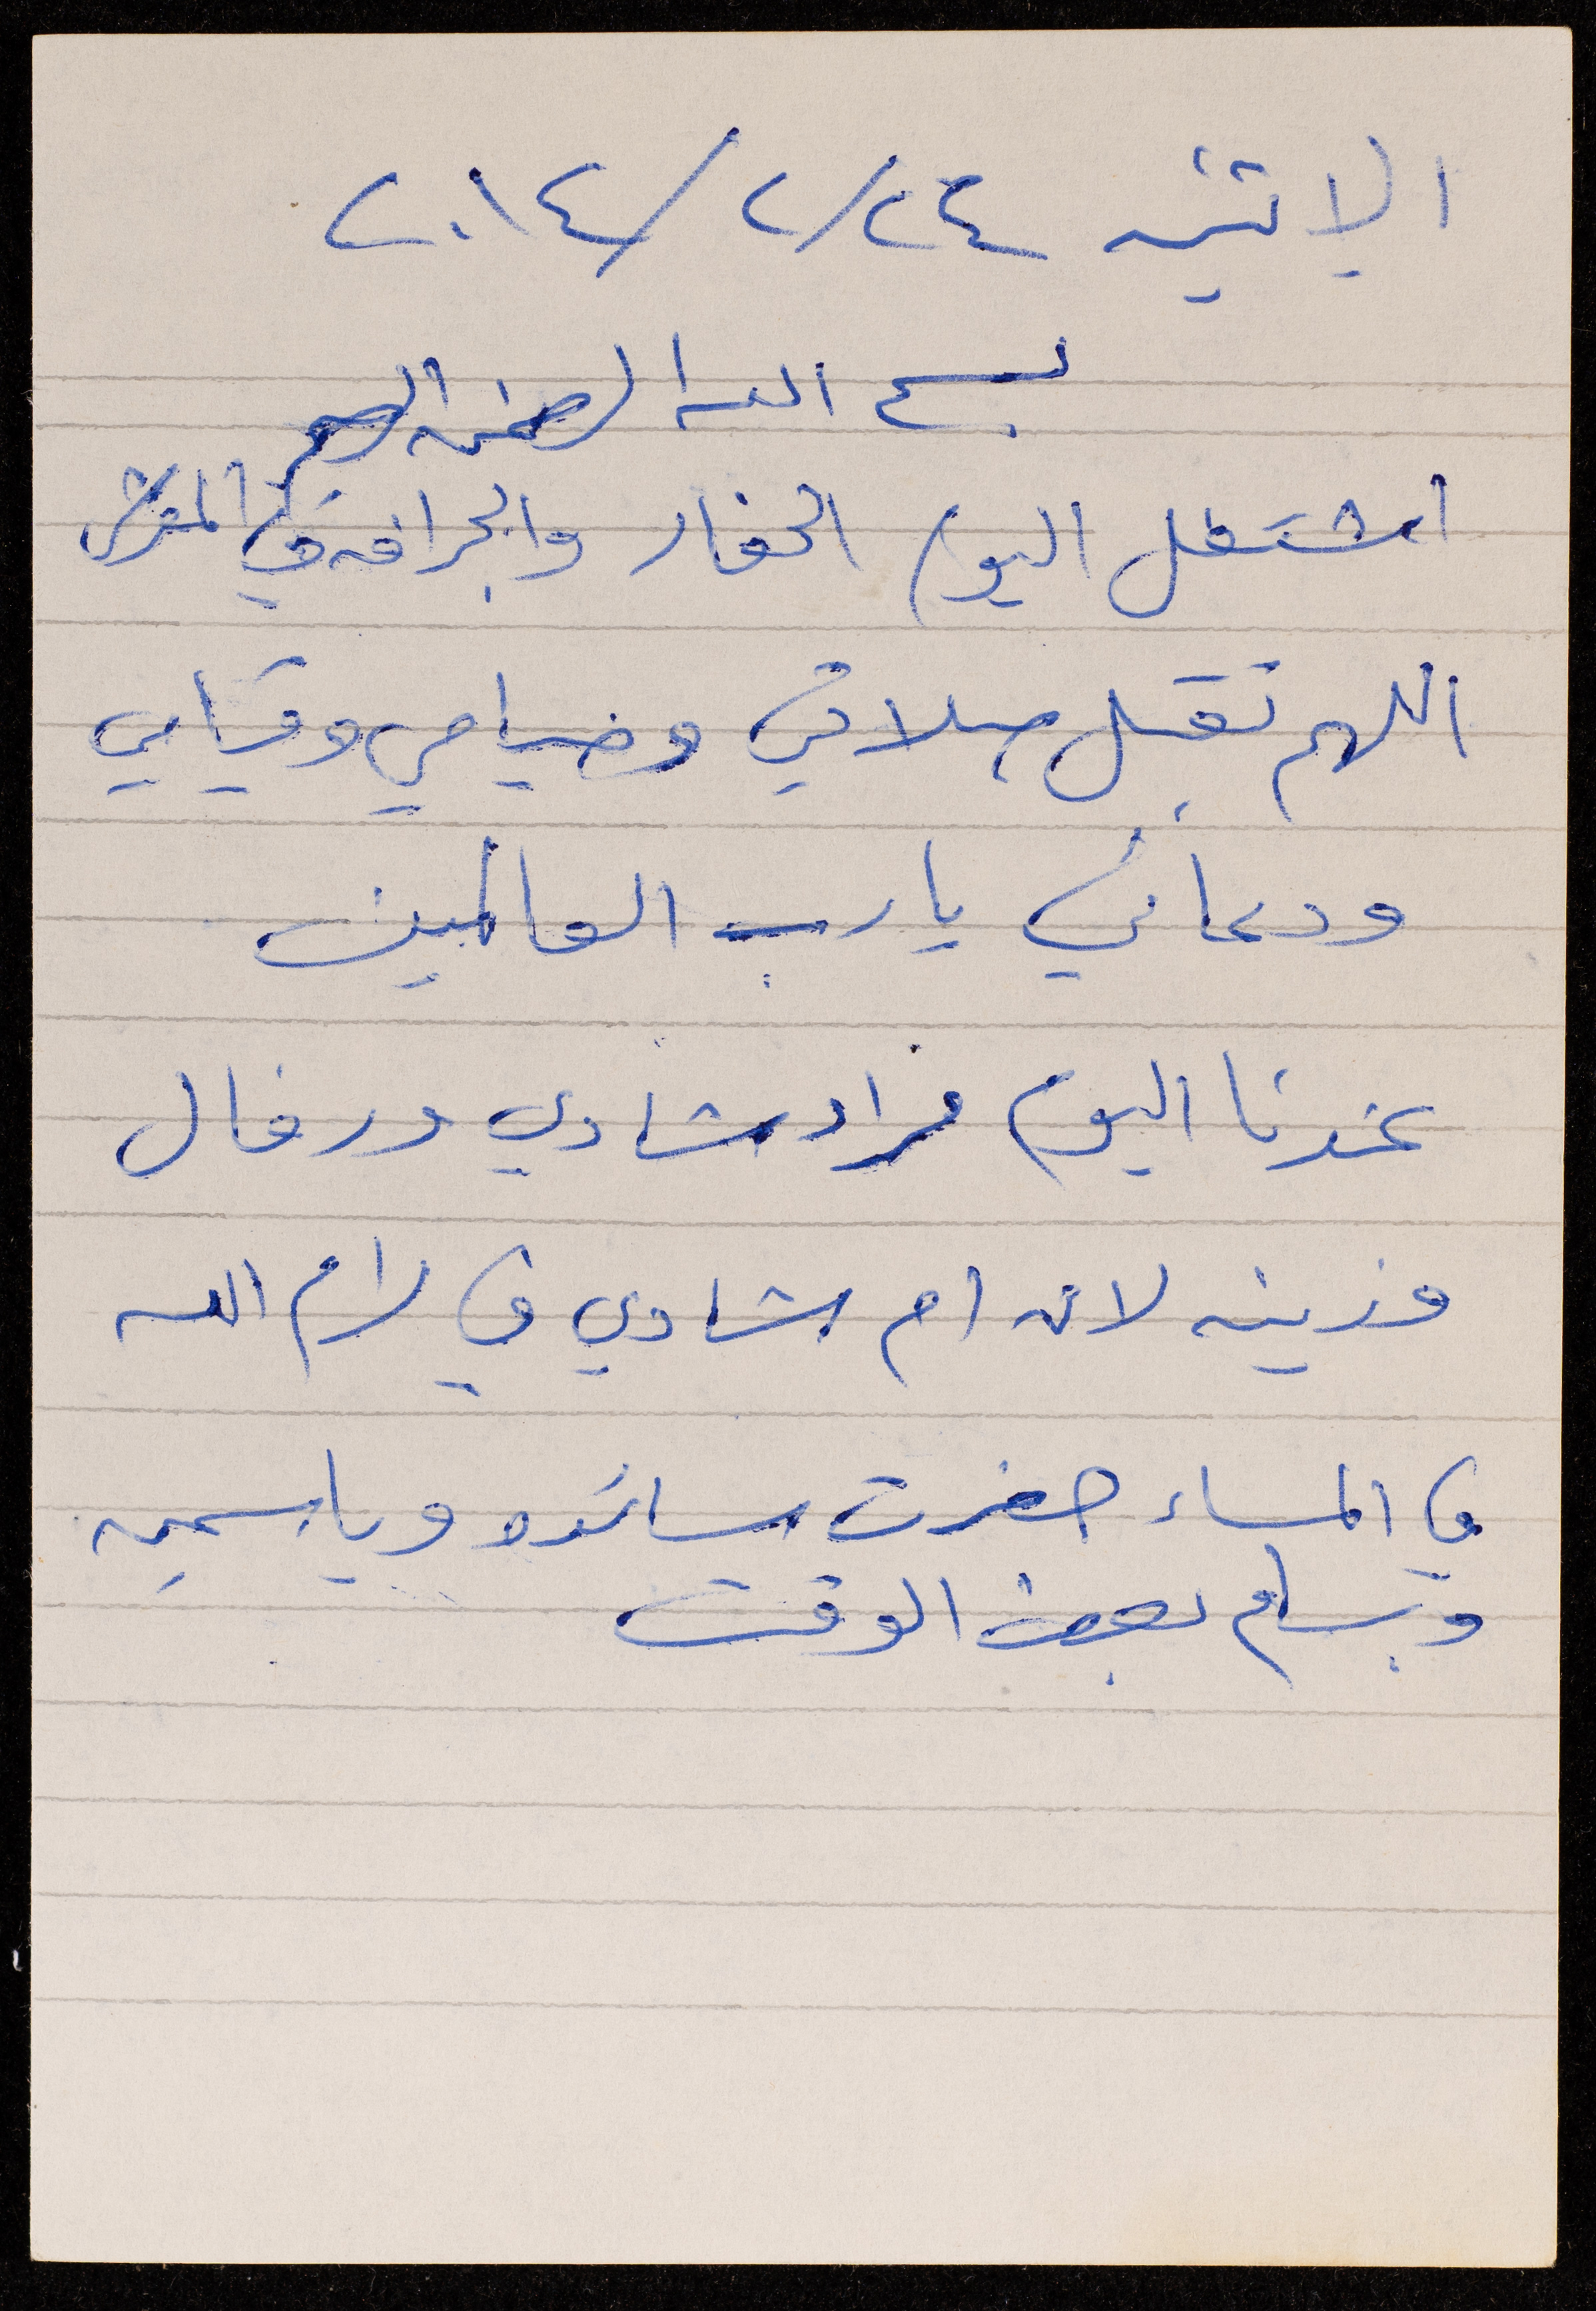 الاثنين ٢٠١٤/٢/٢٤
بسم الله الرحمن الرحيم
اشتغل اليوم الحفار والجرافه في
اللهم تقبل صلاتي وصيامي وقيامي
ودعائي يا رب العالمين
عندنا اليوم مراد شادي ورفال
وزينه لان ام شادي في رام الله
في المساء حضرت سائده وياسمين
وبسام بعض الوقت